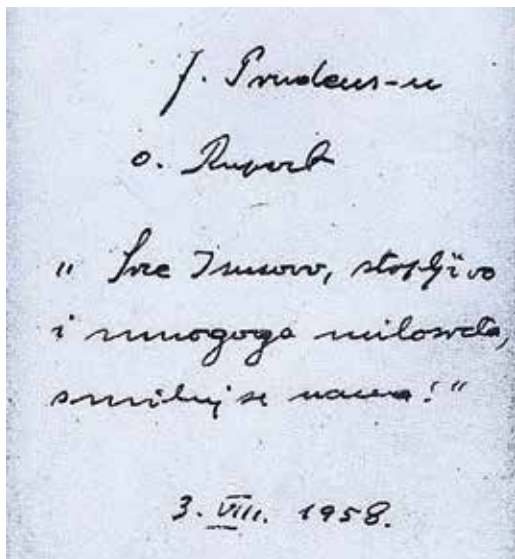 f. Prudens-u
o. Rupert
" Srce Isusovo, strpljivo
i mnogoga milosrđa,
smiluj se nama! "
3. VIII. 1958.